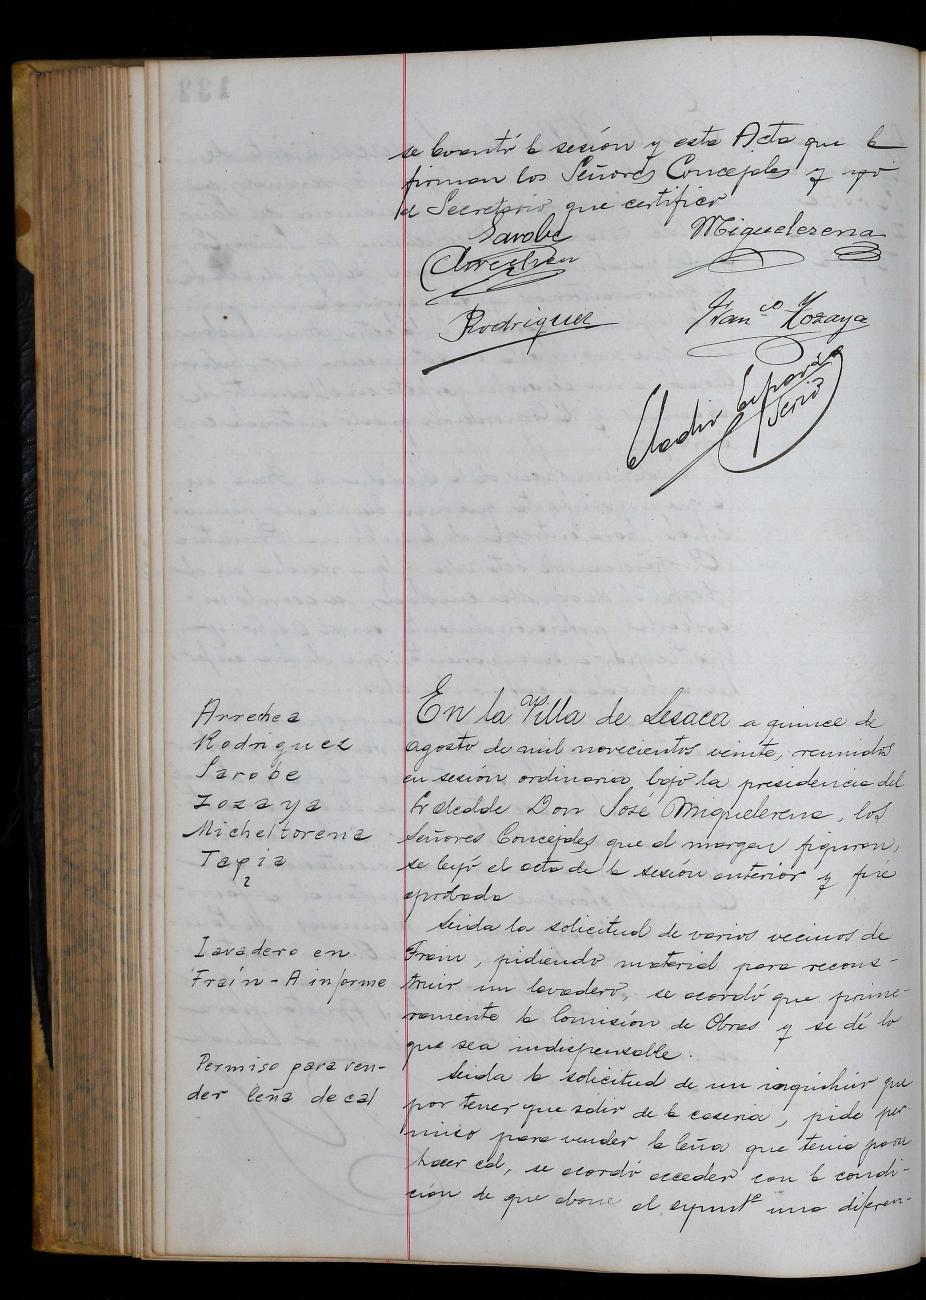 se levantó la sesión y esta Acta que la
firman los Señores Concejales y yo
el Secretario que certifico
Sarobe
Miguelerena
Arrechea
Rodriguez
Fran.co Zozaya
Eladio Esparza
Serio
Arrechea
Rodriguez
Sarobe
Zozaya
Micheltorena
Tapia
En la Villa de Lesaca a quince de
agosto de mil novecientos veinte, reunidos
en sesión ordinaria bajo la presidencia del
Sr Alcalde Don José Miguelerena, los
Señores Concejales que al margen figuran,
se leyó el acta de la sesión anterior y fué
aprobada
Lavadero en
Frain - A informe
Leida la solicitud de varios vecinos de
Frain, pidiendo material para recons-
truir un lavadero, se acordó que prime-
ramente la Comisión de Obras y se dé lo
que sea indispensable.
Permiso para ven-
der leña de cal
Leida la solicitud de un inquilino que
por tener que salir de la caseria, pide per-
miso para vender la leña que tenia para
hacer cal, se acordó acceder con la condi-
ción de que abone al ayunte una diferen-